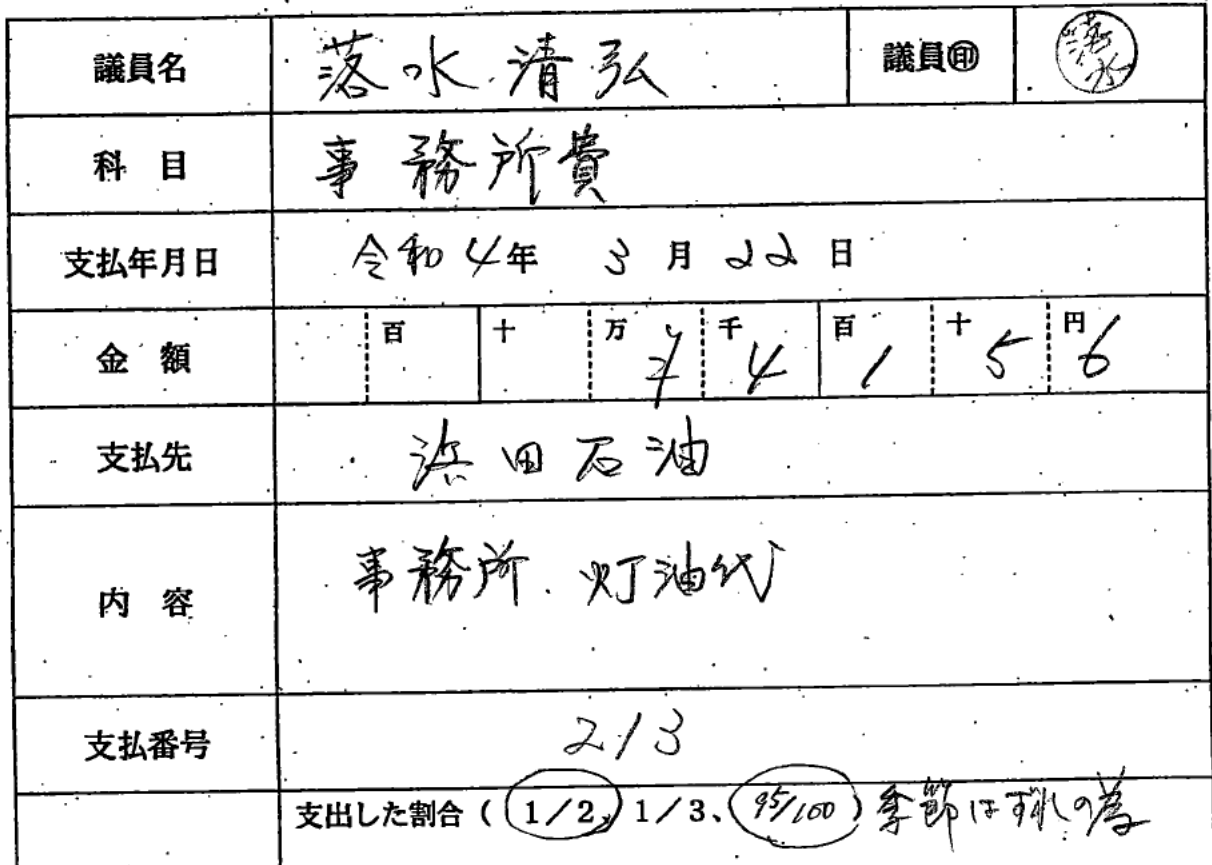 議員名 落水清弘 議員㊞ 落水
科目 事務所費
支払年月日 令和4年 3月22日
金額 百 十 万¥ 千4 百1 十5 円6
支払先 浜田石油
内容 事務所.灯油代
支払番号 213
支出した割合（1/2、1/3、95/100）季節はずれの為